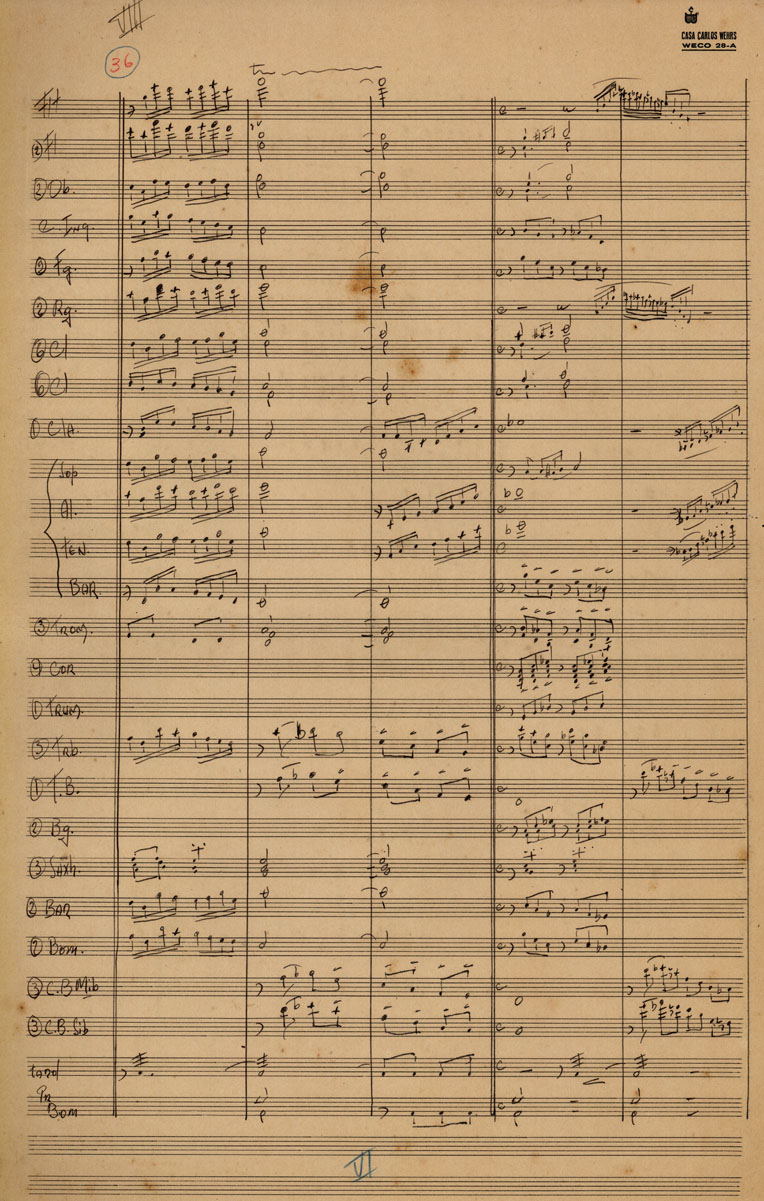 VIIII
CASA CARLOS WEHRS
WECO 28-A
36
tr
Fl
① Fl
② Ob.
C. Ing.
② Fg.
② Rg.
⑥ Cl
⑥ Cl
① ClA.
Sop
Al.
TEN.
BAR.
③ TROM.
COR
① TRUM.
③ Trb.
① T.B.
② Bg.
③ SAXh.
② BAR
② Bom.
③ C.B Mib
③ C.B Sib
tarol
Bom
VI